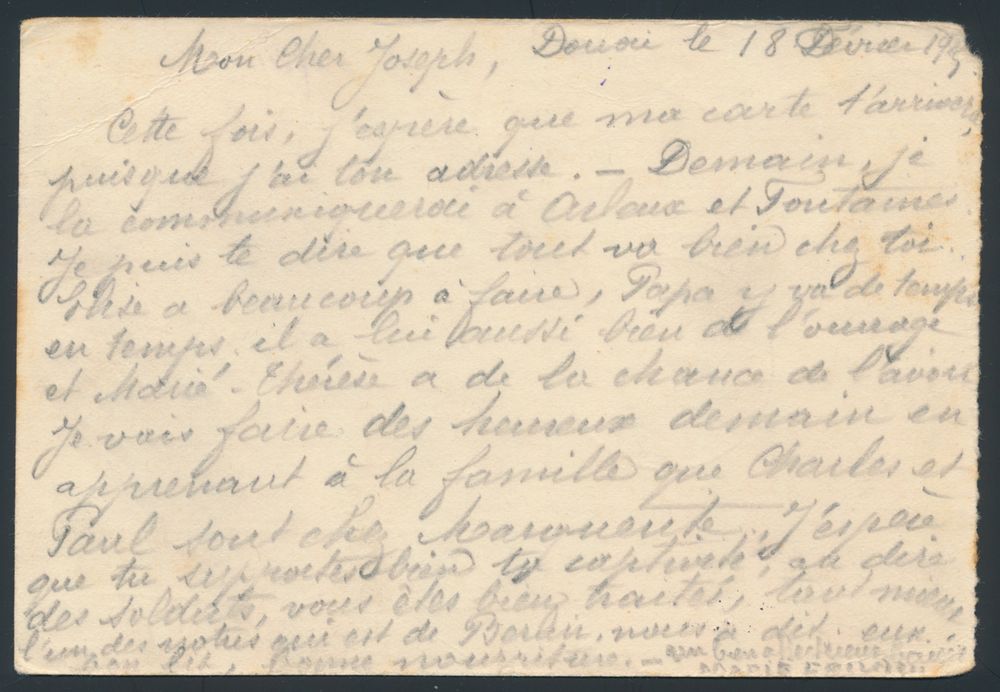 Douai le 18 Février 19
Mon Cher Joseph,
Cette fois, j'espère que ma carte t'arrivera,
puisque j'ai ton adresse. — Demain, je
la communiquerai à Arleux et Fontaines.
Je puis te dire que tout va bien chez toi.
Elise a beaucoup à faire, Papa y va de temps
en temps il a lui aussi bien de l'ouvrage
et Marie-Thérèse a de la chance de l'avoir
Je vais faire des heureux demain en
apprenant à la famille que Charles et
Paul sont chez Marguerite. J'espère
que tu supportes bien ta captivité, au dire
des soldats, vous êtes bien traités, tant mieux
l'un des notres qui est de nous a dit eux.
bon lit, bonne nourriture. — un bon affectueux